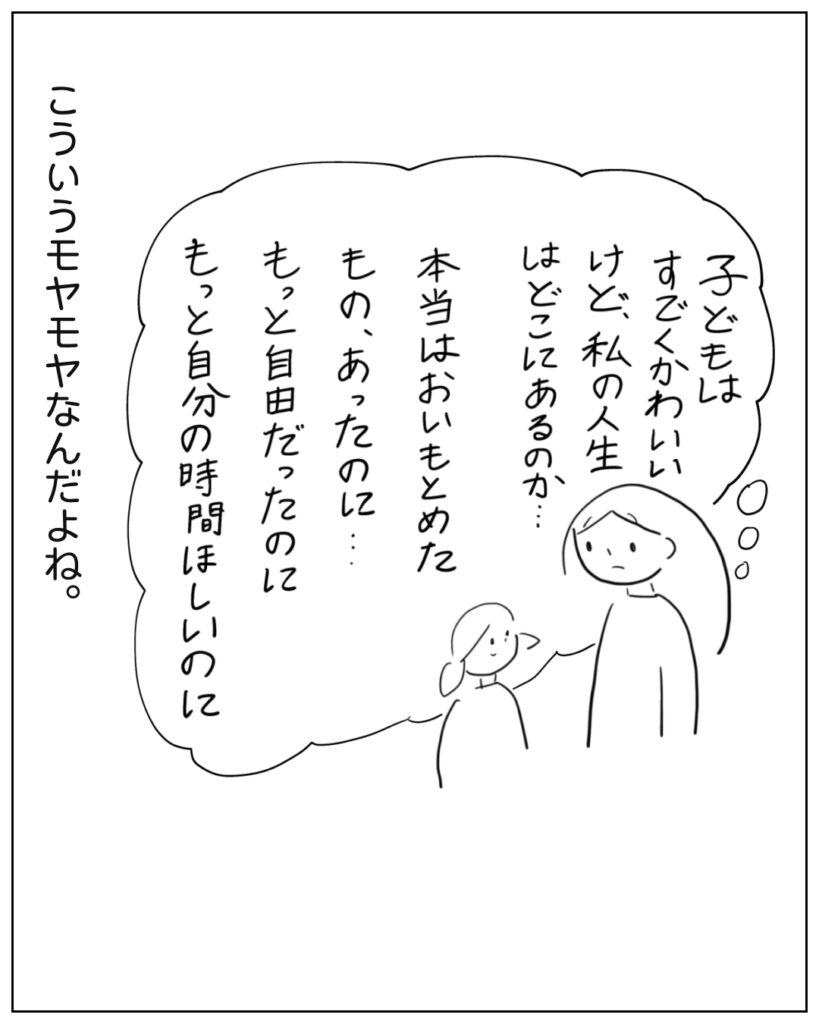 子どもは
すごくかわいい
けど、私の人生
はどこにあるのか…
本当はおいもとめた
もの、あったのに…
もっと自由だったのに
もっと自分の時間ほしいのに
こういうモヤモヤなんだよね。